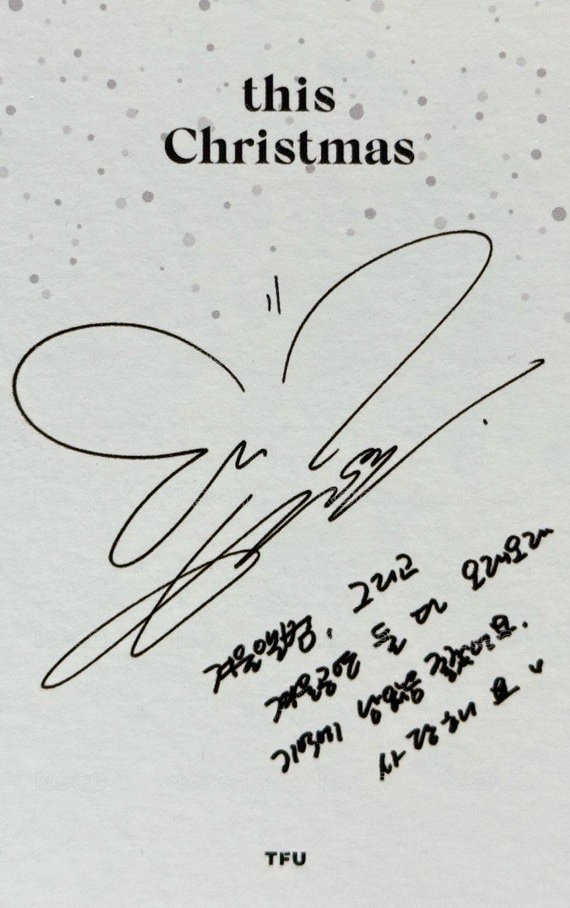 this
Christmas
겨울앨범, 그리고
겨울공연 둘 다 오래오래
기억에 남았음 좋겠어요.
사랑해요
TFU